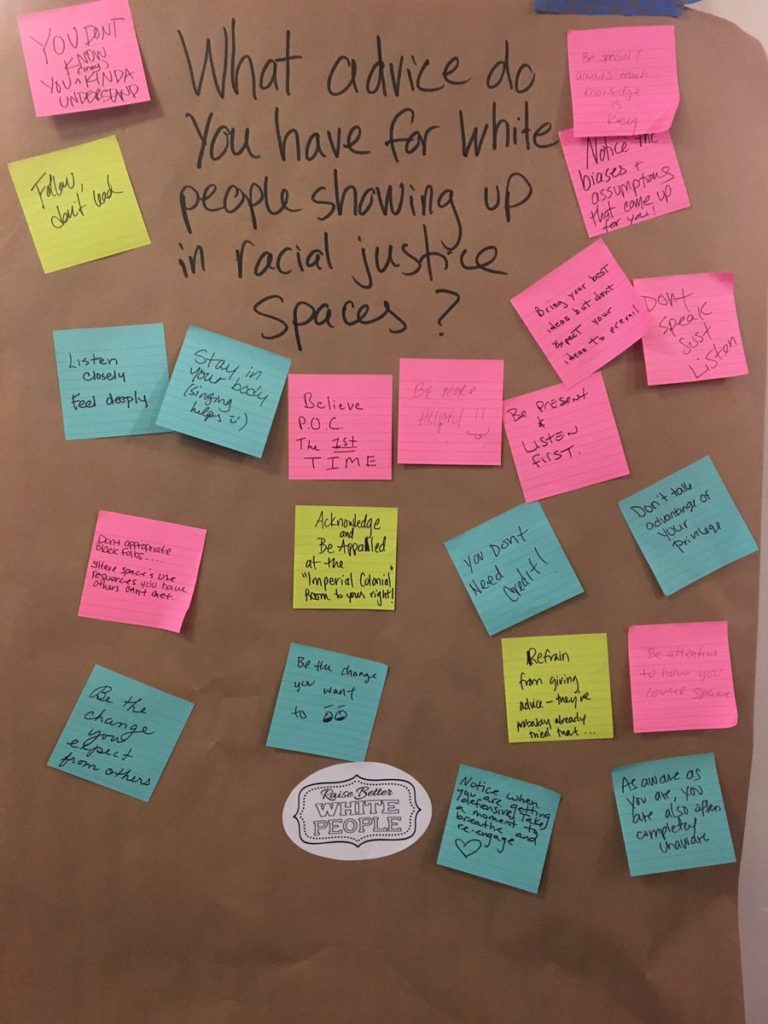 What advice do
You have for white
people showing up
in racial justice
Spaces?
YOU DONT
KNOW
(may)
YOU ^ KINDA
UNDERSTAND
Be special!
always teach
knowledge
is
Key
Follow,
don't lead
Notice the
biases +
assumptions
that come up
for you!
Bring your best
ideas but don't
Expect your
ideas to prevail
DONT
SPEAK
JUST
LISTEN
Listen
closely
Feel deeply
Stay in
your body
(singing
helps :)
Believe
P.O.C.
The 1st
TIME
Be more
Helpful!!
Be PRESENT
&
LISTEN
FIRST.
Dont appropriate
Black folks.....
Share space's use
resources you have
others dont get.
Acknowledge
and
Be Appalled
at the
"Imperial Colonial"
Room to your right!
You Dont
Need
Credit!
Don't take
advantage of
your
privilege
Be the
change
you
expect
from others
Be the change
you want
to
Refrain
from giving
advice - they've
probably already
tried that ...
Be attentive
to how you
space
Raise Better
WHITE
PEOPLE
Notice when
you are getting
defensive, take
a moment to
breathe and
re-engage
As aware as
you are, you
are also often
completely
unaware